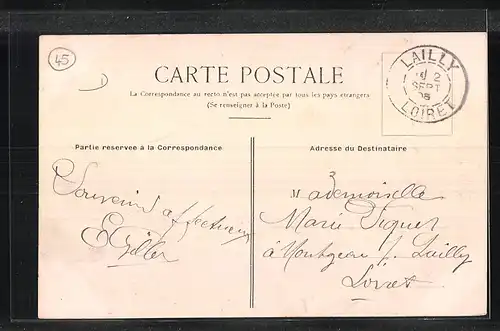 45
LAILLY
2
SEPT
LOIRET
CARTE POSTALE
La Correspondance au recto n'est pas acceptée par tous les pays étrangers
(Se renseigner à la Poste)
Partie réservée à la Correspondance
Adresse du Destinataire
Souvenir affectueux
Mademoiselle
Marie
à p. Lailly
Loiret